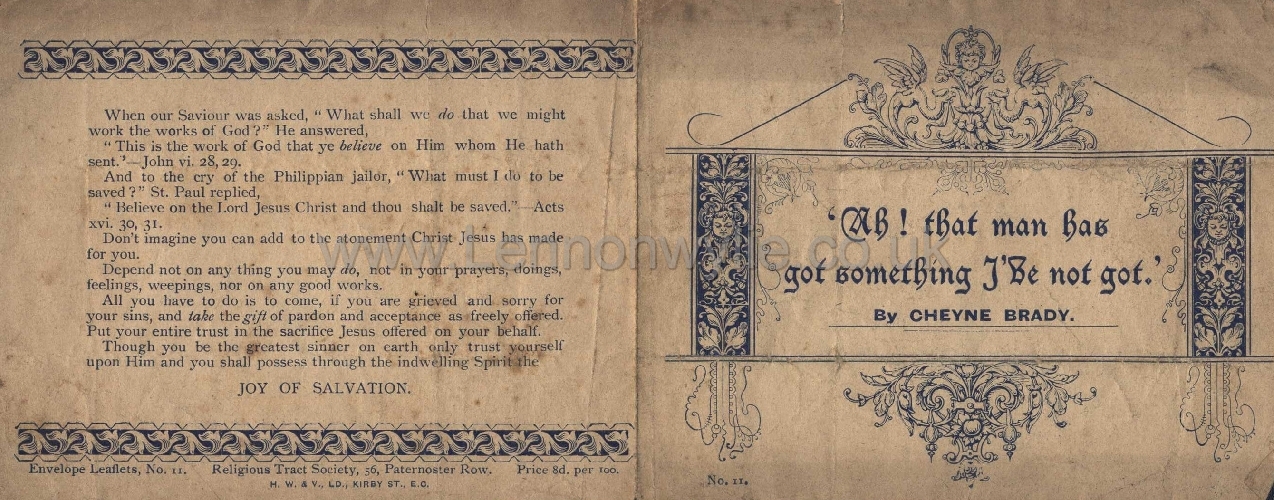 When our Saviour was asked, “What shall we do that we might
work the works of God?” He answered,
“This is the work of God that ye believe on Him whom He hath
sent.”—John vi. 28, 29.
And to the cry of the Philippian jailor, “What must I do to be
saved?” St. Paul replied,
“Believe on the Lord Jesus Christ and thou shalt be saved.”—Acts
xvi. 30, 31.
Don’t imagine you can add to the atonement Christ Jesus has made
for you.
Depend not on any thing you may do, not in your prayers, doings,
feelings, weepings, nor on any good works.
All you have to do is to come, if you are grieved and sorry for
your sins, and take the gift of pardon and acceptance as freely offered.
Put your entire trust in the sacrifice Jesus offered on your behalf.
Though you be the greatest sinner on earth only trust yourself
upon Him and you shall possess through the indwelling Spirit the
JOY OF SALVATION.
Envelope Leaflets, No. 11. Religious Tract Society, 56, Paternoster Row. Price 8d. per 100.
H. W. & V., LD., KIRBY ST., E.C.
‘Ah! that man has
got something I’ve not got.’
By CHEYNE BRADY.
No. 11.
www.Lennonwylie.co.uk